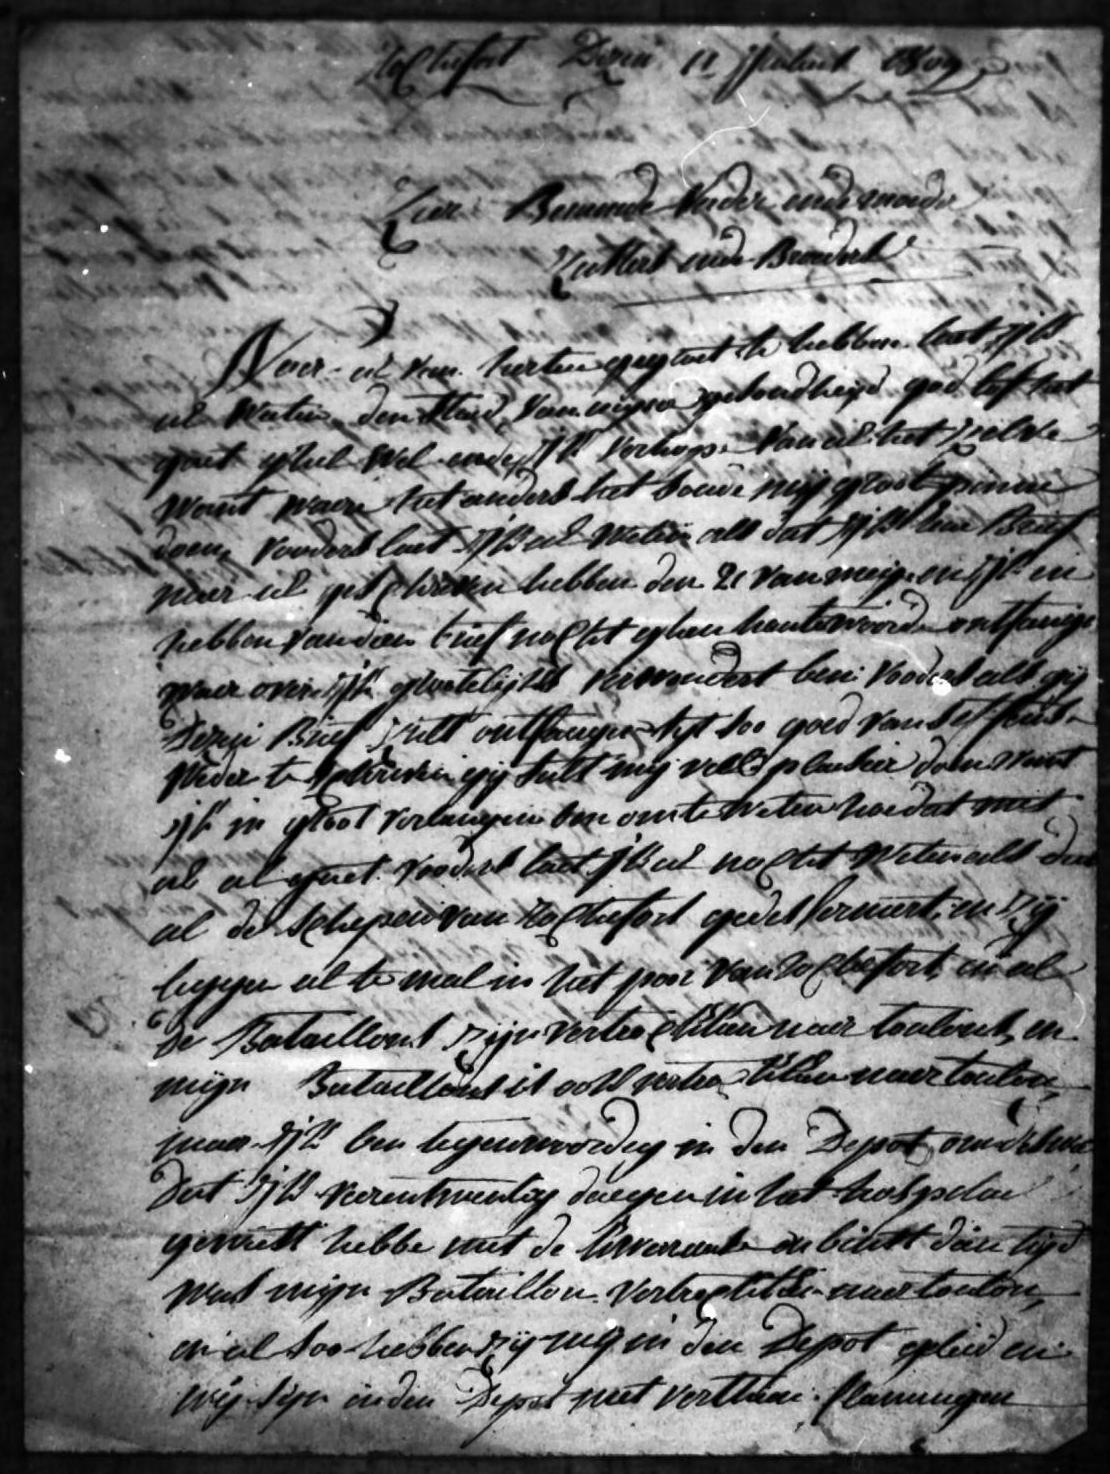 Rochefort Desen 11 1809
Zeer Beminde Vader ende moeder
Zusters ende Broeders
Naer ul van herten gegroet te hebben laet ijk
ul Weten den staed van mijne gesondheyd god lof het
gaet ghel wel ende ijk verhope van ul het zelve
want waere het anders het soude mij groot pynne
doen voorders laet ijk ul Weten als dat ijk eene Brief
naer ul geschreven hebben den 21 van meije en ijk en
hebben van dien brief nochtit gheen hantwoorde ontfangen
waer over ijk grootelijckx verwondert ben voorders als gij
Desen Brief zult ontfangen sijt soo goed van
Weder te schriven gij sult mij veel plaesier doen want
ijk in groot verlangen ben om te Weten hoe dat met
ul al gaet voorders laet ijk ul nochtit Weten als dat
al de schepen van Rochefort en zij
leggen al te mael in het poor van rochefort en al
de Bataillons zijn vertrochtken naer toulons en
mijn Bataillons is ook vertrochtken naer toulon
maer ijk ben tegenwoordig in den Depot
Dat ijk veerenthwentig daegen in het hospitael
geweest hebbe met de en binst dien tijd
was mijn Bataillon vertrochtken naer toulon
en al soo hebben zij mij in den Depot geleid en
wij sijn in den Depot met verthien flamingen